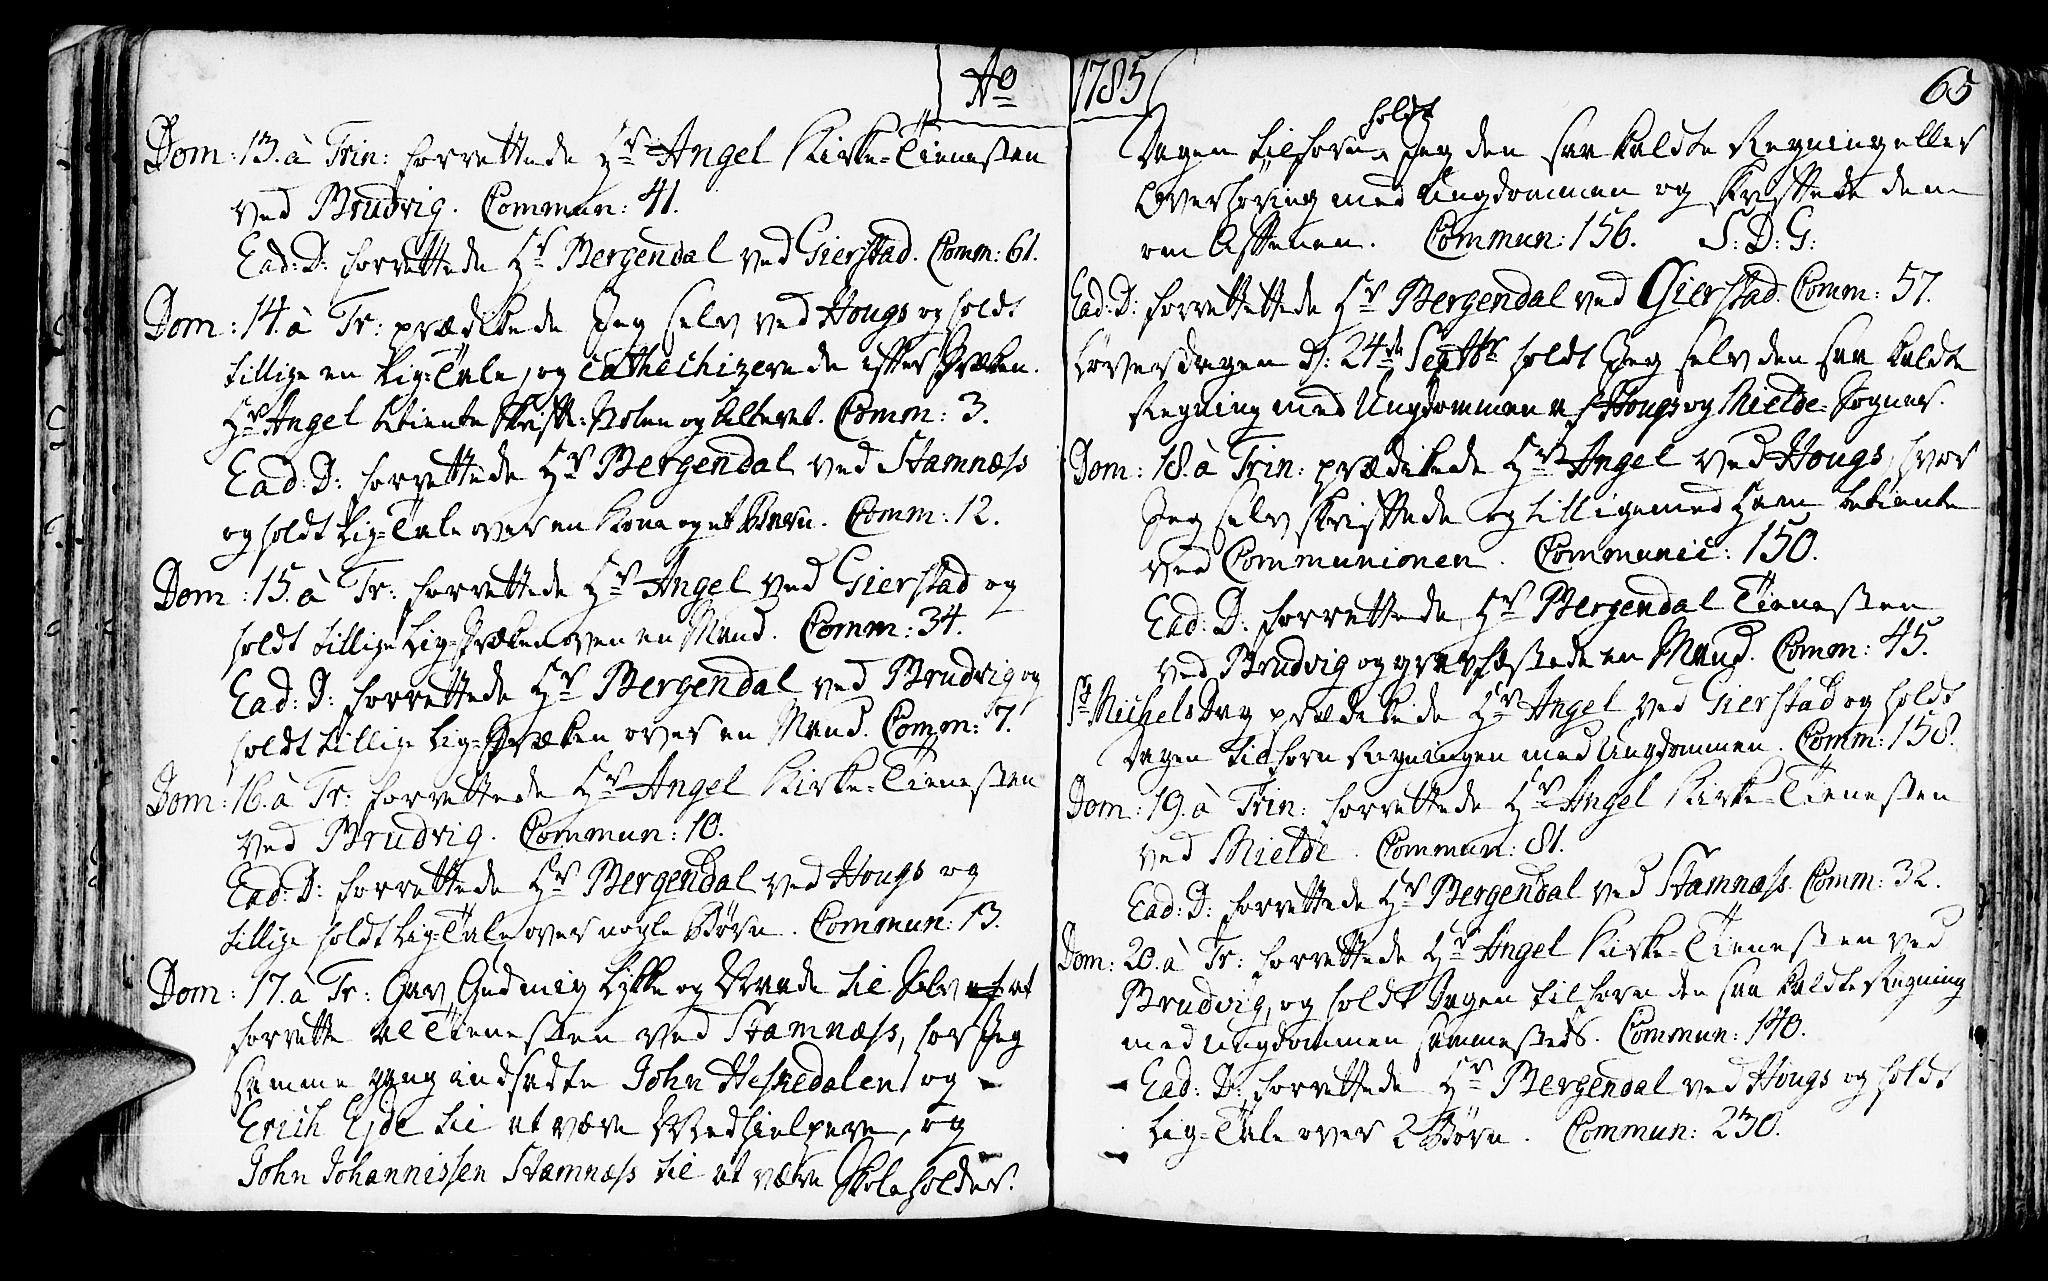 Ao 1785
65
Dom: 13. à Trin: forrettede Hr Angel Kirke-Tienesten
ved Brudvig. Commun: 41.
Ead: D: forrettede Hr Bergendal ved Gierstad. Comm: 61.
Dom: 14. à Tr: prædikede Jeg selv ved Hougs og holdt
tillige en Lig-Tale, og Cathechizerede efter Præken.
Hr Angel betiente Skrifte-Stolen og Alteret. Comm: 3.
Ead: D: forrettede Hr Bergendal ved Stamnæss
og holdt Lig-Tale over en Kone og et Barn. Comm: 12.
Dom: 15. à Tr: forrettede Hr Angel ved Gierstad og
holdt tillige Lig-Præken over en Mand. Comm: 34.
Ead: D: forrettede Hr Bergendal ved Brudvig og
holdt tillige Lig-Præken over en Mand. Comm: 7.
Dom: 16. à Tr: forrettede Hr Angel Kirke-Tienesten
ved Brudvig. Commun: 10.
Ead: D: forrettede Hr Bergendal ved Hougs og
tillige holdt Lig-Tale over nogle Børn. Commun: 13.
Dom: 17. à Tr: Gav Gud mig Lykke og Naade til Selv at
forrette al Tienesten ved Stamnæss, hor Jeg
samme gang indsadte John Hesjedalen og
Erich Ejde til at være Medhielpere, og
John Johannissen Stamnæss til at være Skoleholder.
Dagen tilforn holdt Jeg den saa kaldte Regning eller
Overhøring med Ungdommen og skriftede dem
om Aftenen. Commun: 156. S: D: G:
Ead: D: forrettettede Hr Bergendal ved Gierstad. Comm: 57.
Løverdagen d: 24de Septbr holdt Jeg selv den saa kaldte
Regning med Ungdommen af Hougs og Mielde-Sogner.
Dom: 18. à Trin: prædikede Hr Angel ved Hougs, hvor
Jeg selv skriftede og tilligemed ham betiente
ved Communionen. Communic: 150.
Ead: D: forrettede Hr Bergendal Tienesten
ved Brudvig og gravfæstede en Mand. Comm: 45.
St Michels Dag prædikede Hr Angel ved Gierstad og holdt
Dagen tilforn Regningen med Ungdommen. Comm: 158.
Dom: 19. à Trin: forrettede Hr Angel Kirke-Tienesten
ved Mielde. Commun: 81.
Ead: D: forrettede Hr Bergendal ved Stamnæss. Comm: 32.
Dom: 20. à Tr: forrettede Hr Angel Kirke-Tienesten ved
Brudvig, og holdt Dagen tilforn den saa kaldte Regning
med Ungdommen sammesteds. Commun: 140.
Ead: D: forrettede Hr Bergendal ved Hougs og holdt
Lig-Tale over 2 Børn. Commun: 230.